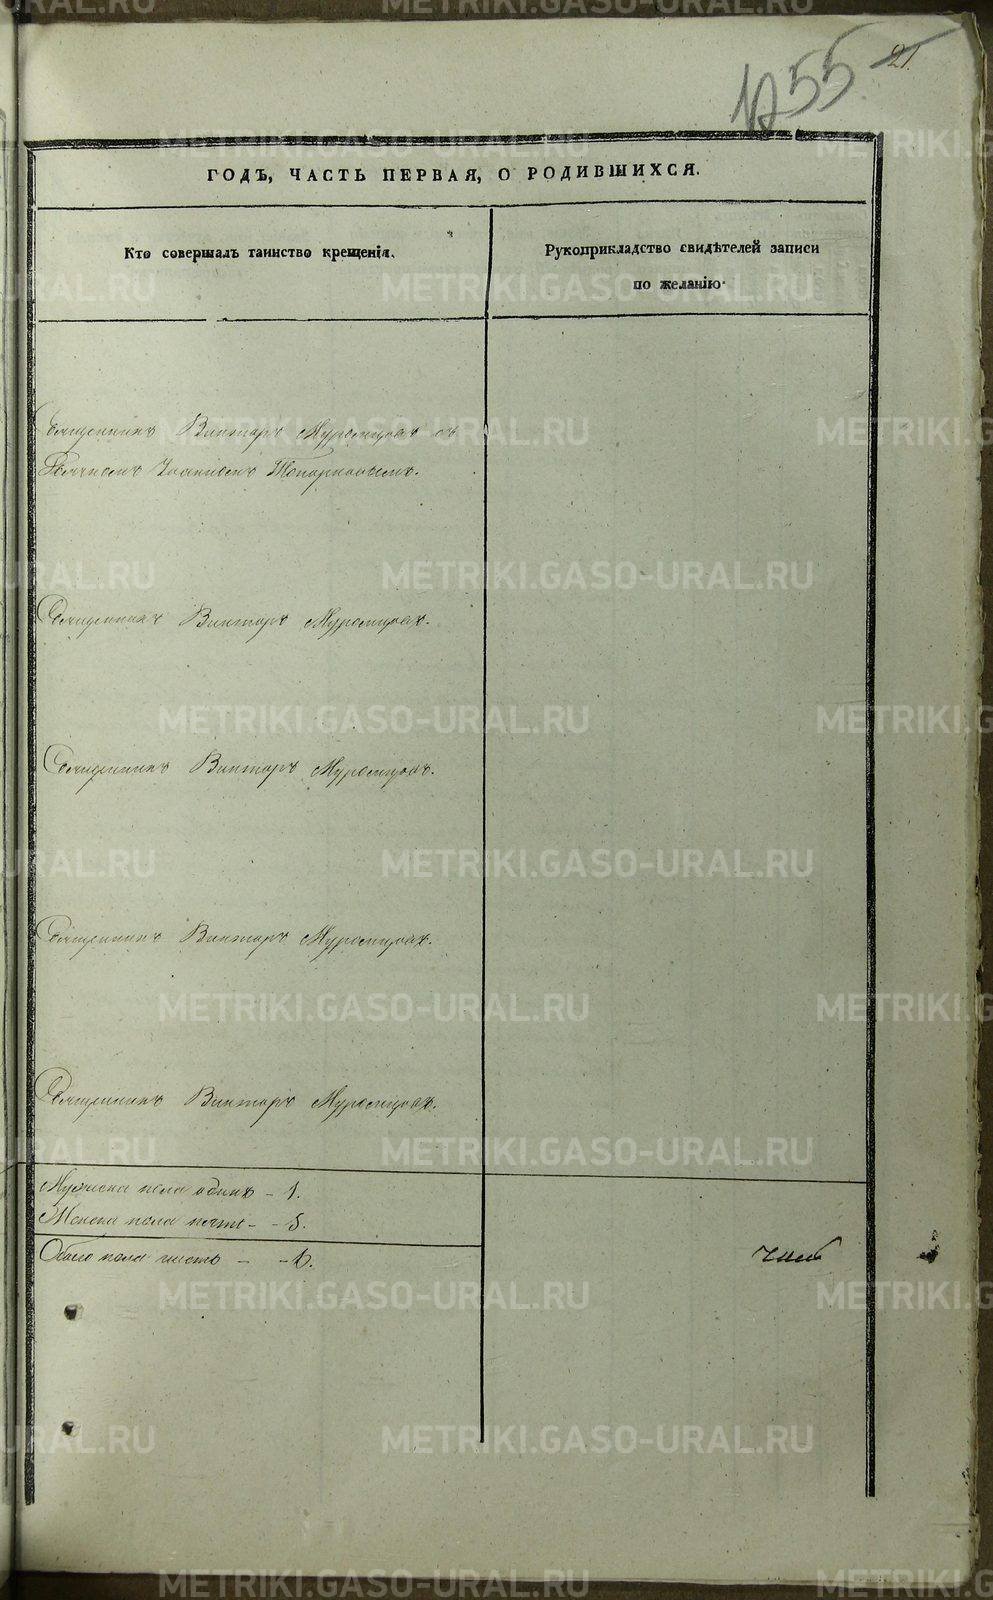 1255
21.
ГОДЪ, ЧАСТЬ ПЕРВАЯ, О РОДИВШИХСЯ.
Кто совершалъ таинство крещенія.
Рукоприкладство свидѣтелей записи
по желанію.
Священникъ Викторъ Муромцовъ съ
Дьячкомъ Іоанномъ Топорковымъ.
Священникъ Викторъ Муромцовъ.
Священникъ Викторъ Муромцовъ.
Священникъ Викторъ Муромцовъ.
Священникъ Викторъ Муромцовъ.
Мужеска пола одинъ - 1.
Женска пола пять - - 5.
Обоего пола шесть - - 6.
METRIKI.GASO-URAL.RU